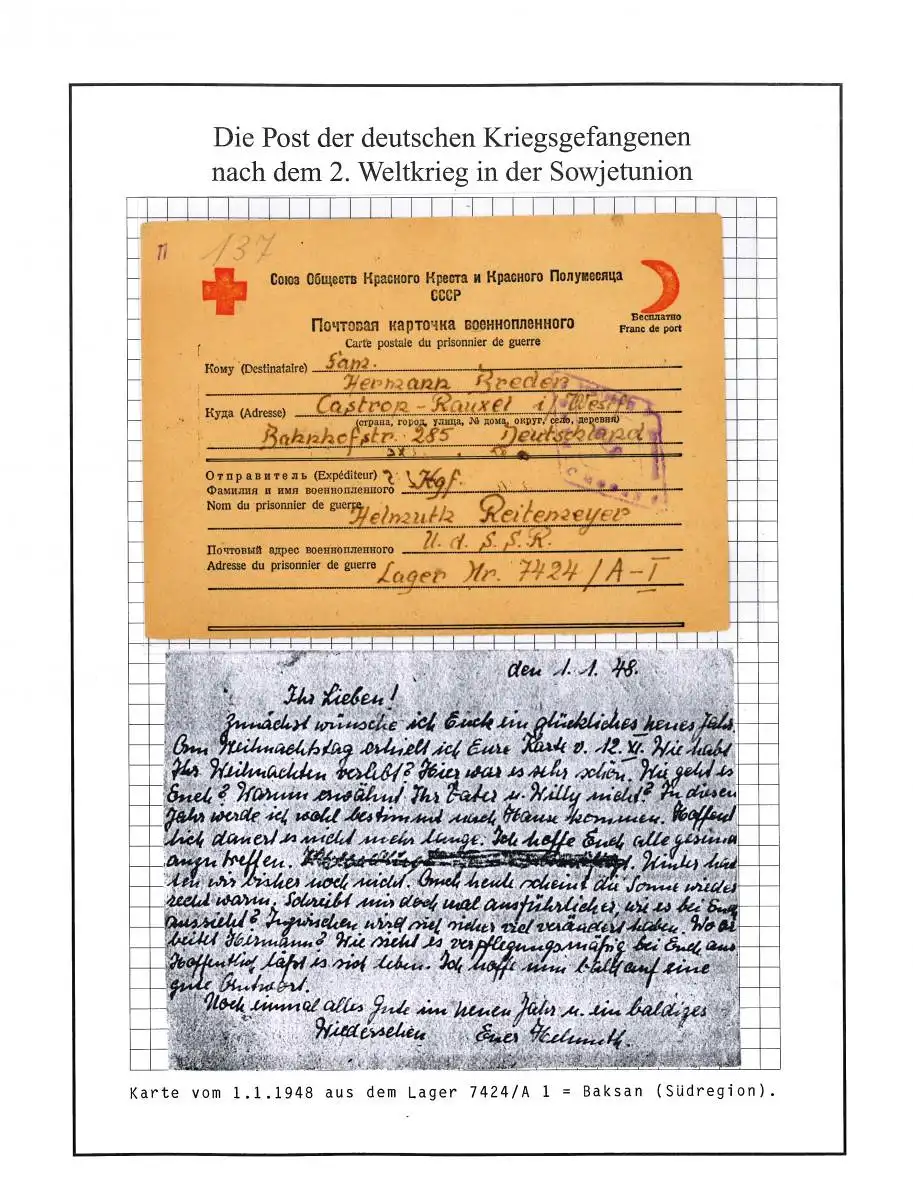 Die Post der deutschen Kriegsgefangenen
nach dem 2. Weltkrieg in der Sowjetunion
П 137
Союз Обществ Красного Креста и Красного Полумесяца
СССР
Бесплатно
Franc de port
Почтовая карточка военнопленного
Carte postale du prisonnier de guerre
Кому (Destinataire) Fam.
Hermann Breden
Куда (Adresse) Castrop-Rauxel i/Westf.
(страна, город, улица, № дома, округ, село, деревня)
Bahnhofstr. 285 Deutschland
Отправитель (Expéditeur)
Фамилия и имя военнопленного Kgf.
Nom du prisonnier de guerre Helmuth Reitemeyer
Почтовый адрес военнопленного U.d.S.S.R.
Adresse du prisonnier de guerre Lager Nr. 7424/A-I
den 1.1.48.
Ihr Lieben!
Zunächst wünsche ich Euch ein glückliches neues Jahr.
Am Weihnachtstag erhielt ich Eure Karte v. 12.XI. Wie habt
Ihr Weihnachten verlebt? Hier war es sehr schön. Wie geht es
Euch? Warum erwähnt Ihr Vater u. Willy nicht? In diesen
Jahr werde ich wohl bestimmt nach Hause kommen. Hoffent
lich dauert es nicht mehr lange. Ich hoffe Euch alle gesund
anzutreffen. Winter hat
ten wir bisher noch nicht. Auch heute scheint die Sonne wieder
recht warm. Schreibt mir doch mal ausführlicher, wie es bei Euch
aussieht? Inzwischen wird sich sicher viel verändert haben. Wo ar
beitet Hermann? Wie sieht es verpflegungsmäßig bei Euch aus
Hoffentlich läßt es sich leben. Ich hoffe nun bald auf eine
gute Antwort.
Noch einmal alles Gute im neuen Jahr u. ein baldiges
Wiedersehen Euer Helmuth.
Karte vom 1.1.1948 aus dem Lager 7424/A 1 = Baksan (Südregion).